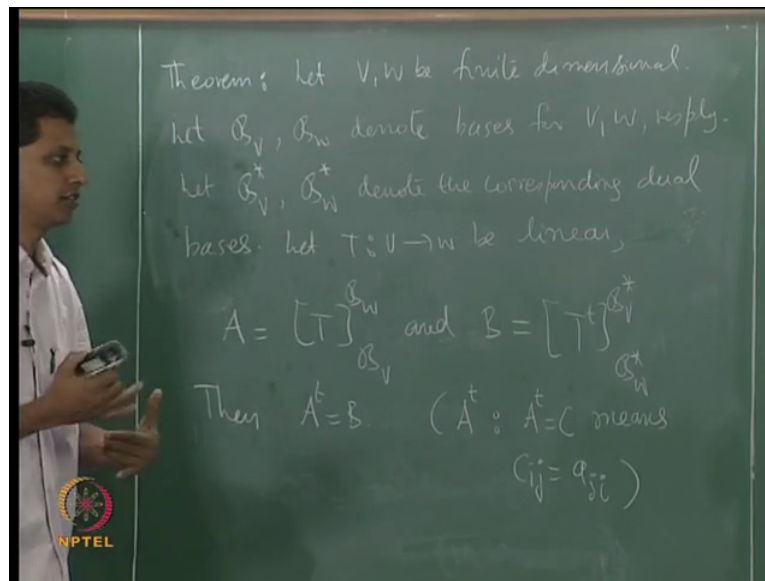 Theorem: Let V, W be finite dimensional.
Let 𝓑_V, 𝓑_W denote bases for V, W, resply.
Let 𝓑_V^*, 𝓑_W^* denote the corresponding dual
bases. Let T: V → W be linear,
A = [T]_{𝓑_V}^{𝓑_W} and B = [T^t]_{𝓑_W^*}^{𝓑_V^*}
Then A^t = B. (A^t : A^t = C means
c_{ij} = a_{ji})
NPTEL